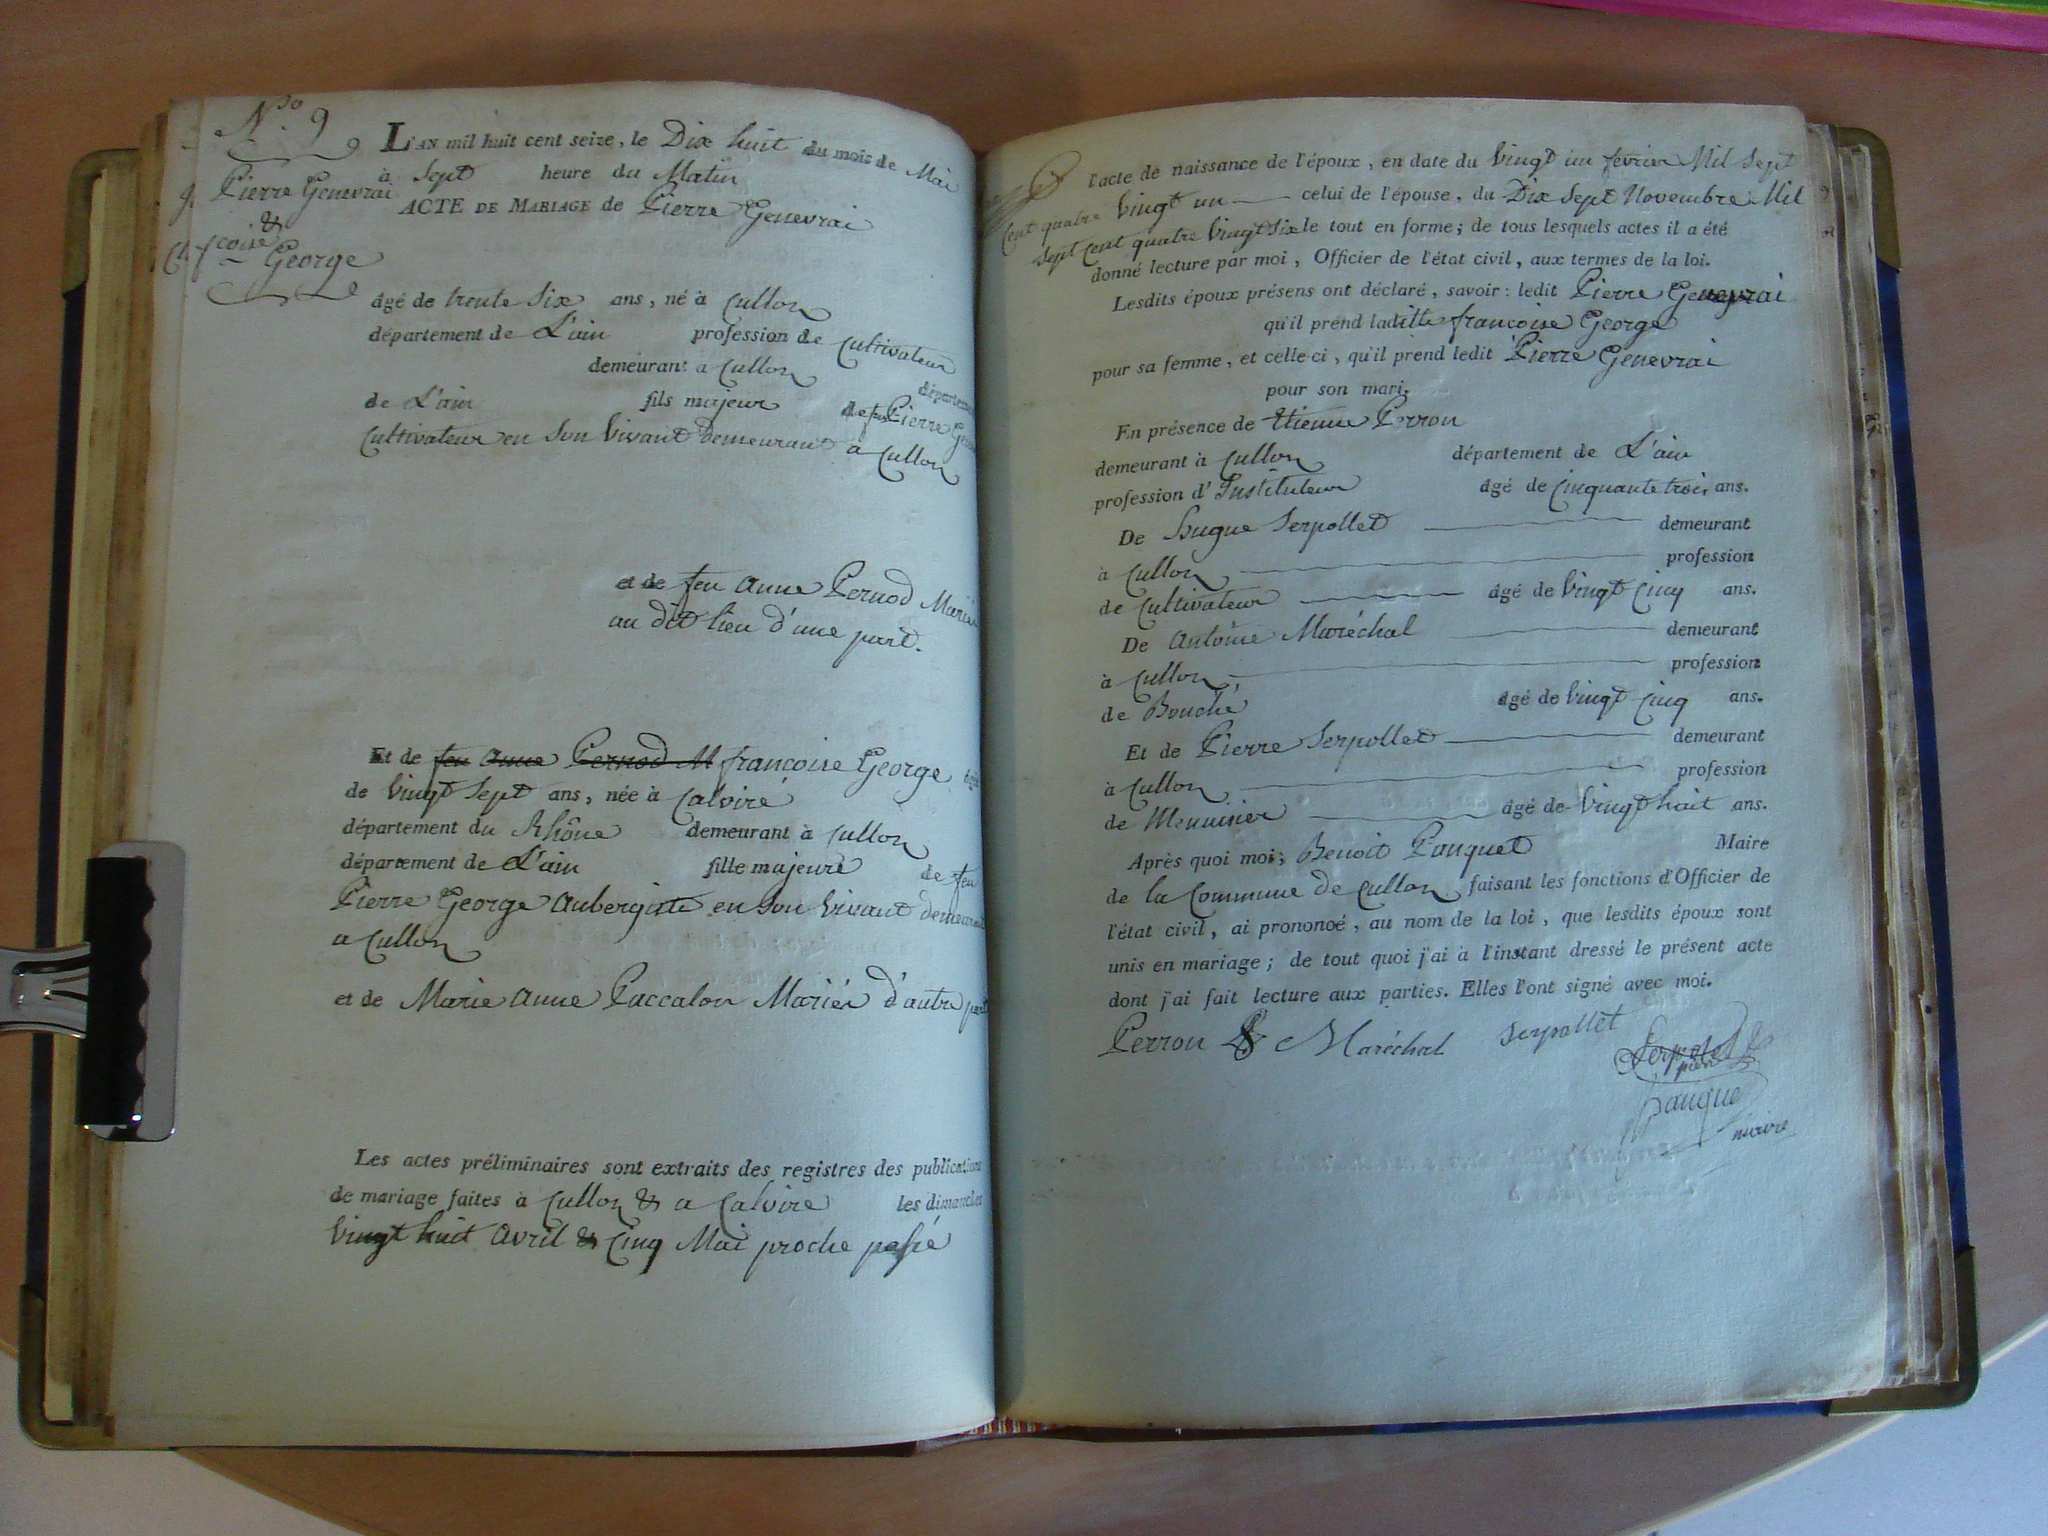 No. 9
Pierre Genevrai
&
fcoise George
L'AN mil huit cent seize, le Dix huit du mois de Mai
à Sept heure du Matin
ACTE DE MARIAGE de Pierre Genevrai
âgé de trente Six ans, né à Cullon
département de L'ain profession de Cultivateur
demeurant a Cullon département
de L'ain fils majeur de feu Pierre
Cultivateur en Son Vivant demeurant a Cullon
et de feu Anne Pernod Mariés
au dit lieu d'une part.
Et de feu Anne Pernod M francoise George
de Vingt Sept ans, née à Calviré
département du Rhône demeurant à Cullon
département de L'ain fille majeure de feu
Pierre George Aubergiste en Son Vivant demeurant
a Cullon
et de Marie Anne Paccalon Mariés d'autre part
Les actes préliminaires sont extraits des registres des publications
de mariage faites à Cullon & a Calvire les dimanches
Vingt huit Avril & Cinq Mai proche passé
l'acte de naissance de l'époux, en date du Vingt un fevrier Mil Sept
Cent quatre Vingt un celui de l'épouse, du Dix Sept Novembre Mil
Sept Cent quatre Vingt Six le tout en forme; de tous lesquels actes il a été
donné lecture par moi, Officier de l'état civil, aux termes de la loi.
Lesdits époux présens ont déclaré, savoir: ledit Pierre Genevrai
qu'il prend laditte francoise George
pour sa femme, et celle-ci, qu'il prend ledit Pierre Genevrai
pour son mari.
En présence de Etienne Perron
demeurant à Cullon département de L'ain
profession d'Instituteur âgé de Cinquante trois ans.
De Hugue Serpollet demeurant
à Cullon profession
de Cultivateur âgé de Vingt Cinq ans.
De Antoine Maréchal demeurant
à Cullon profession
de Bouché âgé de Vingt Cinq ans.
Et de Pierre Serpollet demeurant
à Cullon profession
de Menuisier âgé de Vingt huit ans.
Après quoi moi, Benoit Pauquet Maire
de la Commune de Cullon faisant les fonctions d'Officier de
l'état civil, ai prononcé, au nom de la loi, que lesdits époux sont
unis en mariage; de tout quoi j'ai à l'instant dressé le présent acte
dont j'ai fait lecture aux parties. Elles l'ont signé avec moi.
Perron Maréchal Serpollet
maire